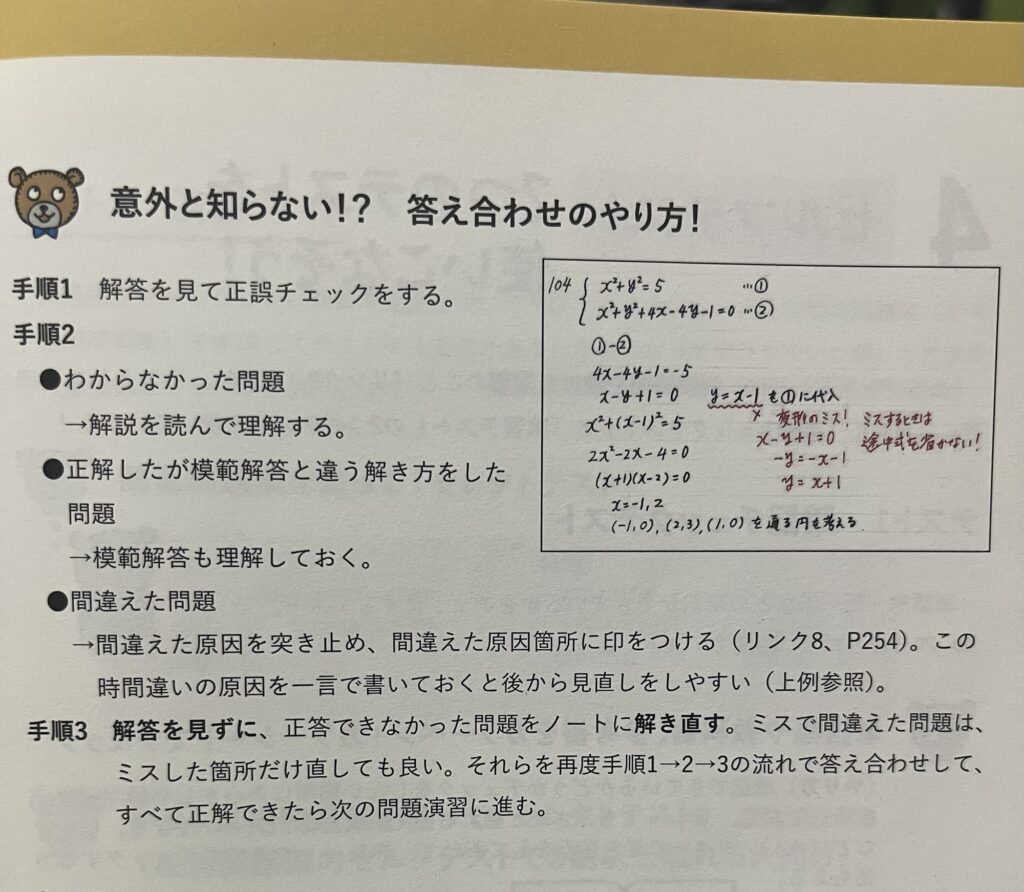 意外と知らない!? 答え合わせのやり方!
手順1 解答を見て正誤チェックをする。
手順2
●わからなかった問題
→解説を読んで理解する。
●正解したが模範解答と違う解き方をした
問題
→模範解答も理解しておく。
●間違えた問題
→間違えた原因を突き止め、間違えた原因箇所に印をつける(リンク8、P254)。この
時間違いの原因を一言で書いておくと後から見直しをしやすい(上例参照)。
手順3 解答を見ずに、正答できなかった問題をノートに解き直す。ミスで間違えた問題は、
ミスした箇所だけ直しても良い。それらを再度手順1→2→3の流れで答え合わせして、
すべて正解できたら次の問題演習に進む。
104 { x²+y²=5 …①
x²+y²+4x-4y-1=0 …②
①-②
4x-4y-1=-5
x-y+1=0 y=x-1 を①に代入
x²+(x-1)²=5
2x²-2x-4=0
(x+1)(x-2)=0
x=-1,2
(-1,0),(2,3),(1,0)を通る円を考える.
× 変形のミス!
x-y+1=0
-y=-x-1
y=x+1
ミスするときは
途中式を省かない!